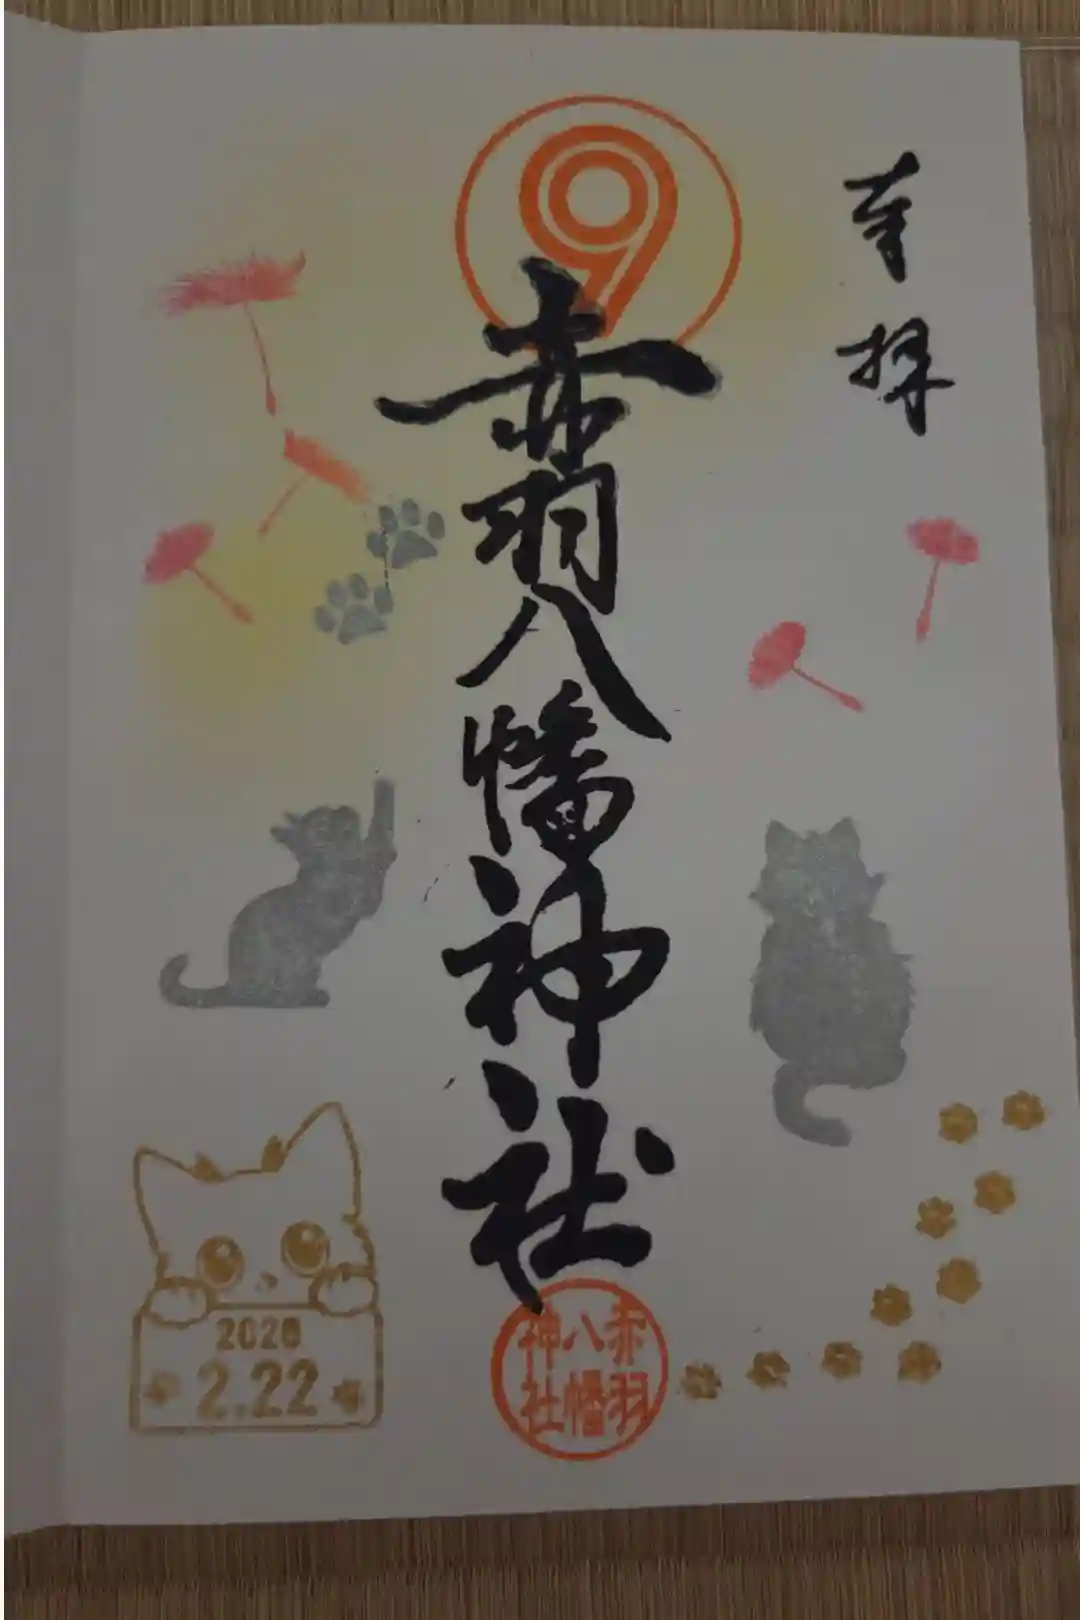 奉拝
赤羽八幡神社
赤羽
八幡
神社
2020
2.22